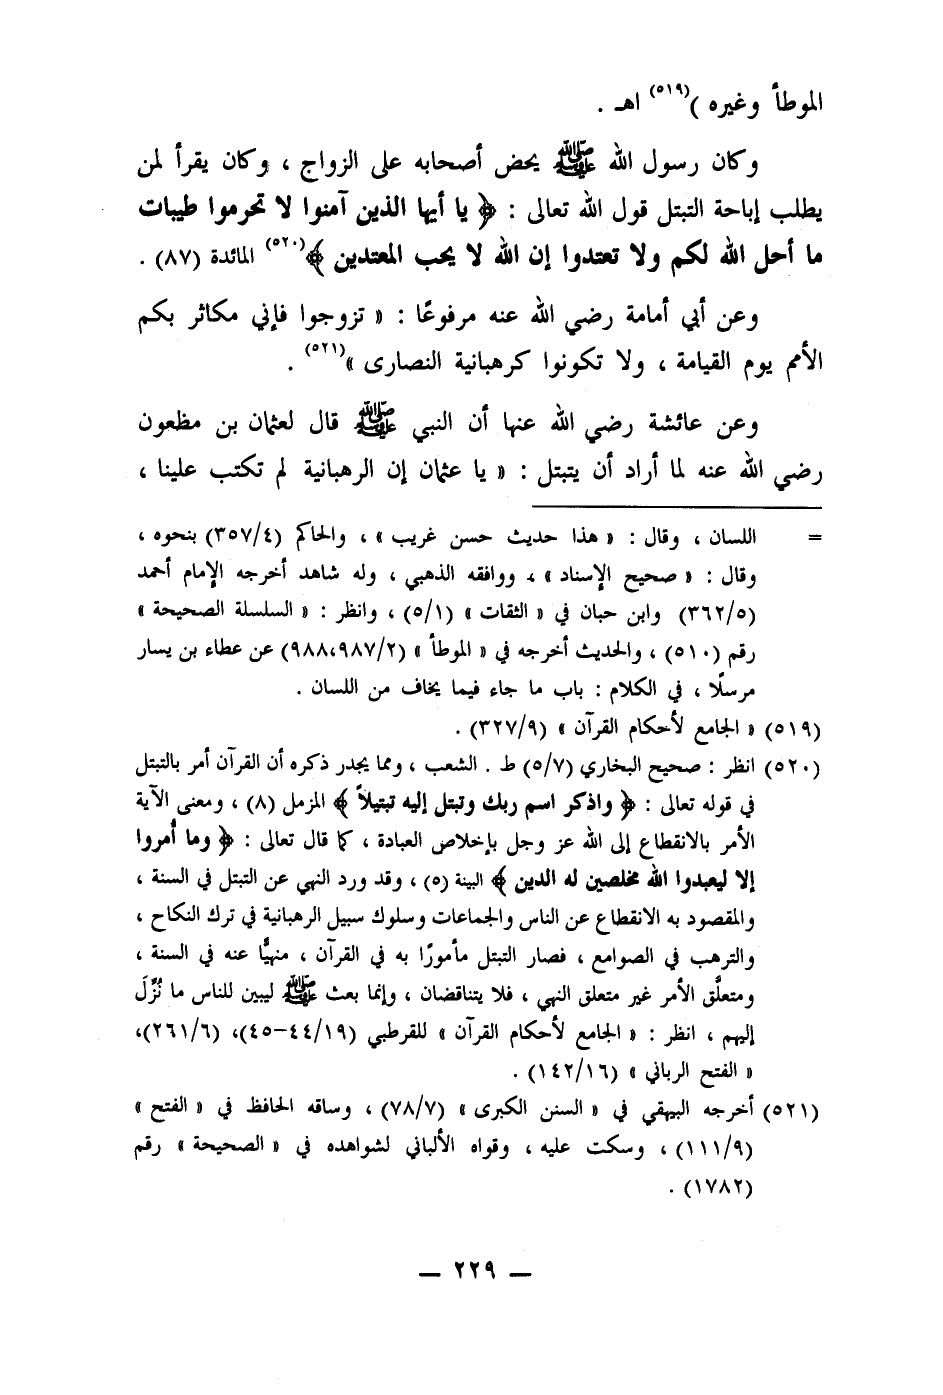 الموطأ وغيره )(٥١٩) اهـ .
وكان رسول الله ﷺ يحض أصحابه على الزواج ، وكان يقرأ لمن
يطلب إباحة التبتل قول الله تعالى : ﴿ يا أيها الذين آمنوا لا تحرموا طيبات
ما أحل الله لكم ولا تعتدوا إن الله لا يحب المعتدين ﴾(٥٢٠) المائدة (٨٧) .
وعن أبي أمامة رضي الله عنه مرفوعًا : « تزوجوا فإني مكاثر بكم
الأمم يوم القيامة ، ولا تكونوا كرهبانية النصارى »(٥٢١) .
وعن عائشة رضي الله عنها أن النبي ﷺ قال لعثمان بن مظعون
رضي الله عنه لما أراد أن يتبتل : « يا عثمان إن الرهبانية لم تكتب علينا ،
= اللسان ، وقال : « هذا حديث حسن غريب » ، والحاكم (٣٥٧/٤) بنحوه ،
وقال : « صحيح الإسناد » ، ووافقه الذهبي ، وله شاهد أخرجه الإمام أحمد
(٣٦٢/٥) وابن حبان في « الثقات » (٥/١) ، وانظر : « السلسلة الصحيحة »
رقم (٥١٠) ، والحديث أخرجه في « الموطأ » (٩٨٨،٩٨٧/٢) عن عطاء بن يسار
مرسلًا ، في الكلام : باب ما جاء فيما يخاف من اللسان .
(٥١٩) « الجامع لأحكام القرآن » (٣٢٧/٩) .
(٥٢٠) انظر : صحيح البخاري (٥/٧) ط . الشعب ، ومما يجدر ذكره أن القرآن أمر بالتبتل
في قوله تعالى : ﴿ واذكر اسم ربك وتبتل إليه تبتيلاً ﴾ المزمل (٨) ، ومعنى الآية
الأمر بالانقطاع إلى الله عز وجل بإخلاص العبادة ، كما قال تعالى : ﴿ وما أُمروا
إلا ليعبدوا الله مخلصين له الدين ﴾ البينة (٥) ، وقد ورد النهي عن التبتل في السنة ،
والمقصود به الانقطاع عن الناس والجماعات وسلوك سبيل الرهبانية في ترك النكاح ،
والترهب في الصوامع ، فصار التبتل مأمورًا به في القرآن ، منهيًّا عنه في السنة ،
ومتعلَّق الأمر غير متعلق النهي ، فلا يتناقضان ، وإنما بعث ﷺ ليبين للناس ما نُزِّلَ
إليهم ، انظر : « الجامع لأحكام القرآن » للقرطبي (٤٤/١٩-٤٥)، (٢٦١/٦)،
« الفتح الرباني » (١٤٢/١٦) .
(٥٢١) أخرجه البيهقي في « السنن الكبرى » (٧٨/٧) ، وساقه الحافظ في « الفتح »
(١١١/٩) ، وسكت عليه ، وقواه الألباني لشواهده في « الصحيحة » رقم
(١٧٨٢) .
— ٢٢٩ —